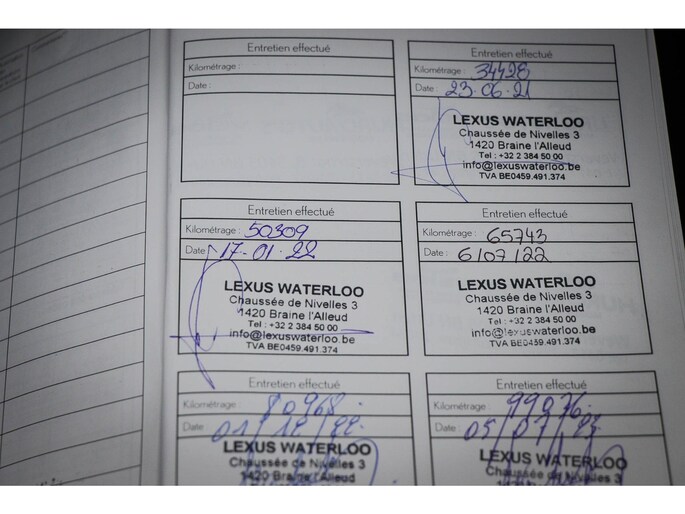 Entretien effectué
Kilométrage :
Date :
Entretien effectué
Kilométrage : 34428
Date : 23.06.21
LEXUS WATERLOO
Chaussée de Nivelles 3
1420 Braine l'Alleud
Tel : +32 2 384 50 00
info@lexuswaterloo.be
TVA BE0459.491.374
Entretien effectué
Kilométrage : 50309
Date : 17-01-22
LEXUS WATERLOO
Chaussée de Nivelles 3
1420 Braine l'Alleud
Tel : +32 2 384 50 00
info@lexuswaterloo.be
TVA BE0459.491.374
Entretien effectué
Kilométrage : 65743
Date : 6/07/22
LEXUS WATERLOO
Chaussée de Nivelles 3
1420 Braine l'Alleud
Tel : +32 2 384 50 00
info@lexuswaterloo.be
TVA BE0459.491.374
Entretien effectué
Kilométrage : 80968
Date : 01/12/22
LEXUS WATERLOO
Chaussée de Nivelles 3
1420 Braine l'Alleud
Entretien effectué
Kilométrage : 99076
Date : 05/07/23
LEXUS WATERLOO
Chaussée de Nivelles 3
1420 Braine l'Alleud